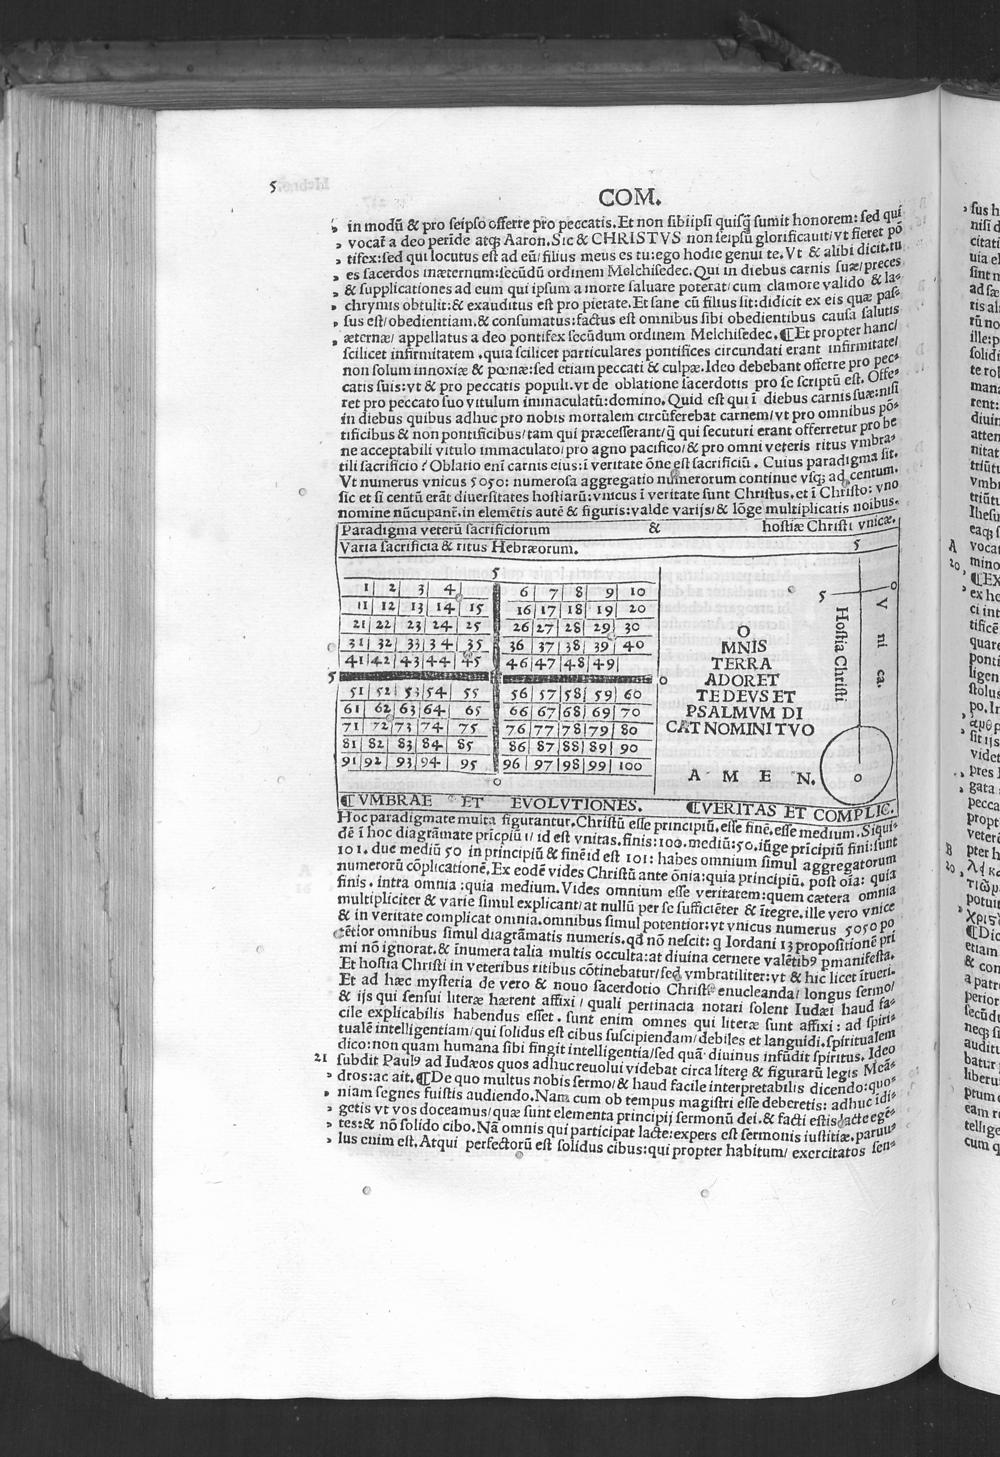 5
COM.
in modū & pro seipso offerre pro peccatis. Et non sibiipsi quisq̄ sumit honorem: sed qui
vocat̄ a deo perīde atq; Aaron. SIC & CHRISTVS non seipsū glorificauit/ vt fieret pō
tifex: sed qui locutus est ad eū/ filius meus es tu: ego hodie genui te. Vt & alibi dicit. tu
es sacerdos inæternum: secūdū ordinem Melchisedec. Qui in diebus carnis suæ/ preces
& supplicationes ad eum qui ipsum a morte saluare poterat/ cum clamore valido & la-
chrymis obtulit: & exauditus est pro pietate. Et sane cū filius sit: didicit ex eis quæ pas-
sus est/ obedientiam. & consumatus: factus est omnibus sibi obedientibus causa salutis
æternæ/ appellatus a deo pontifex secūdum ordinem Melchisedec. ¶Et propter hanc/
scilicet infirmitatem. quia scilicet particulares pontifices circundati erant infirmitate/
non solum innoxiæ & pœnæ: sed etiam peccati & culpæ. Ideo debebant offerre pro pec-
catis suis: vt & pro peccatis populi. vt de oblatione sacerdotis pro se scriptū est. Offe-
ret pro peccato suo vitulum immaculatū: domino. Quid est qui ī diebus carnis suæ: nisi
in diebus quibus adhuc pro nobis mortalem circūferebat carnem/ vt pro omnibus pō-
tificibus & non pontificibus/ tam qui præcesserant/ q̄ qui secuturi erant offerretur pro be
ne acceptabili vitulo immaculato/ pro agno pacifico/ & pro omni veteris ritus vmbra-
tili sacrificio? Oblatio enī carnis eius: ī veritate ōne est sacrificiū. Cuius paradigma sit.
Vt numerus vnicus 5050: numerosa aggregatio numerorum continue vsq; ad centum.
sic et si centū erāt diuersitates hostiarū: vnicus ī veritate sunt Christus. et ī Christo: vno
nomine nūcupanē. in elemētis autē & figuris: valde varijs/ & lōge multiplicatis noibus.
Paradigma veterū sacrificiorum & hostiæ Christi vnicæ.
Varia sacrificia & ritus Hebræorum. 5
5
1 2 3 4 6 7 8 9 10
11 12 13 14 15 16 17 18 19 20
21 22 23 24 25 26 27 28 29 30
31 32 33 34 35 36 37 38 39 40
41 42 43 44 45 46 47 48 49
5 0
51 52 53 54 55 56 57 58 59 60
61 62 63 64 65 66 67 68 69 70
71 72 73 74 75 76 77 78 79 80
81 82 83 84 85 86 87 88 89 90
91 92 93 94 95 96 97 98 99 100
0
O
MNIS
TERRA
ADORET
TE DEVS ET
PSALMVM DI
CAT NOMINI TVO
A M E N.
5 0
Hostia Christi
V ni ca.
0
¶VMBRAE ET EVOLVTIONES. ¶VERITAS ET COMPLIC.
Hoc paradigmate multa figurantur. Christū esse principiū. esse finē. esse medium. Siqui-
dē ī hoc diagrāmate prīcpiū 1/ id est vnitas. finis: 100. mediū: 50. iūge prīcipiū fini: sunt
101. duc mediū 50 in principiū & finē id est 101: habes omnium simul aggregatorum
numerorū cōplicationē. Ex eodē vides Christū ante ōnia: quia principiū. post oīa: quia
finis. intra omnia: quia medium. Vides omnium esse veritatem: quem cætera omnia
multipliciter & varie simul explicant/ at nullū per se sufficiēter & ītegre. ille vero vnice
& in veritate complicat omnia. omnibus simul potentior: vt vnicus numerus 5050 po
tētior omnibus simul diagrāmatis numeris. qd nō nescit: q Iordani 13 propositionē pri
mi nō ignorat. & īnumera talia multis occulta: at diuina cernere valētib9 pmanifesta.
Et hostia Christi in veteribus ritibus cōtinebatur/ sed vmbratiliter: vt & hic licet ītueri.
Et ad hæc mysteria de vero & nouo sacerdotio Christi enucleanda/ longus sermo/
& ijs qui sensui literæ hærent affixi/ quali pertinacia notari solent Iudæi haud fa-
cile explicabilis habendus esset. sunt enim omnes qui literæ sunt affixi: ad spiri-
tualē intelligentiam/ qui solidus est cibus suscipiendam/ debiles et languidi. spiritualem
dico: non quam humana sibi fingit intelligentia/ sed quā diuinus infūdit spiritus. Ideo
21 subdit Paul9 ad Iudæos quos adhuc reuolui videbat circa literę & figurarū legis Meā-
dros: ac ait. ¶De quo multus nobis sermo/ & haud facile interpretabilis dicendo: quo-
niam segnes fuistis audiendo. Nam cum ob tempus magistri esse deberetis: adhuc īdi-
getis vt vos doceamus/ quæ sunt elementa principij sermonū dei. & facti estis lacte egē-
tes: & nō solido cibo. Nā omnis qui participat lacte: expers est sermonis iustitiæ. paruu-
lus enim est. Atqui perfectorū est solidus cibus: qui propter habitum/ exercitatos sen-